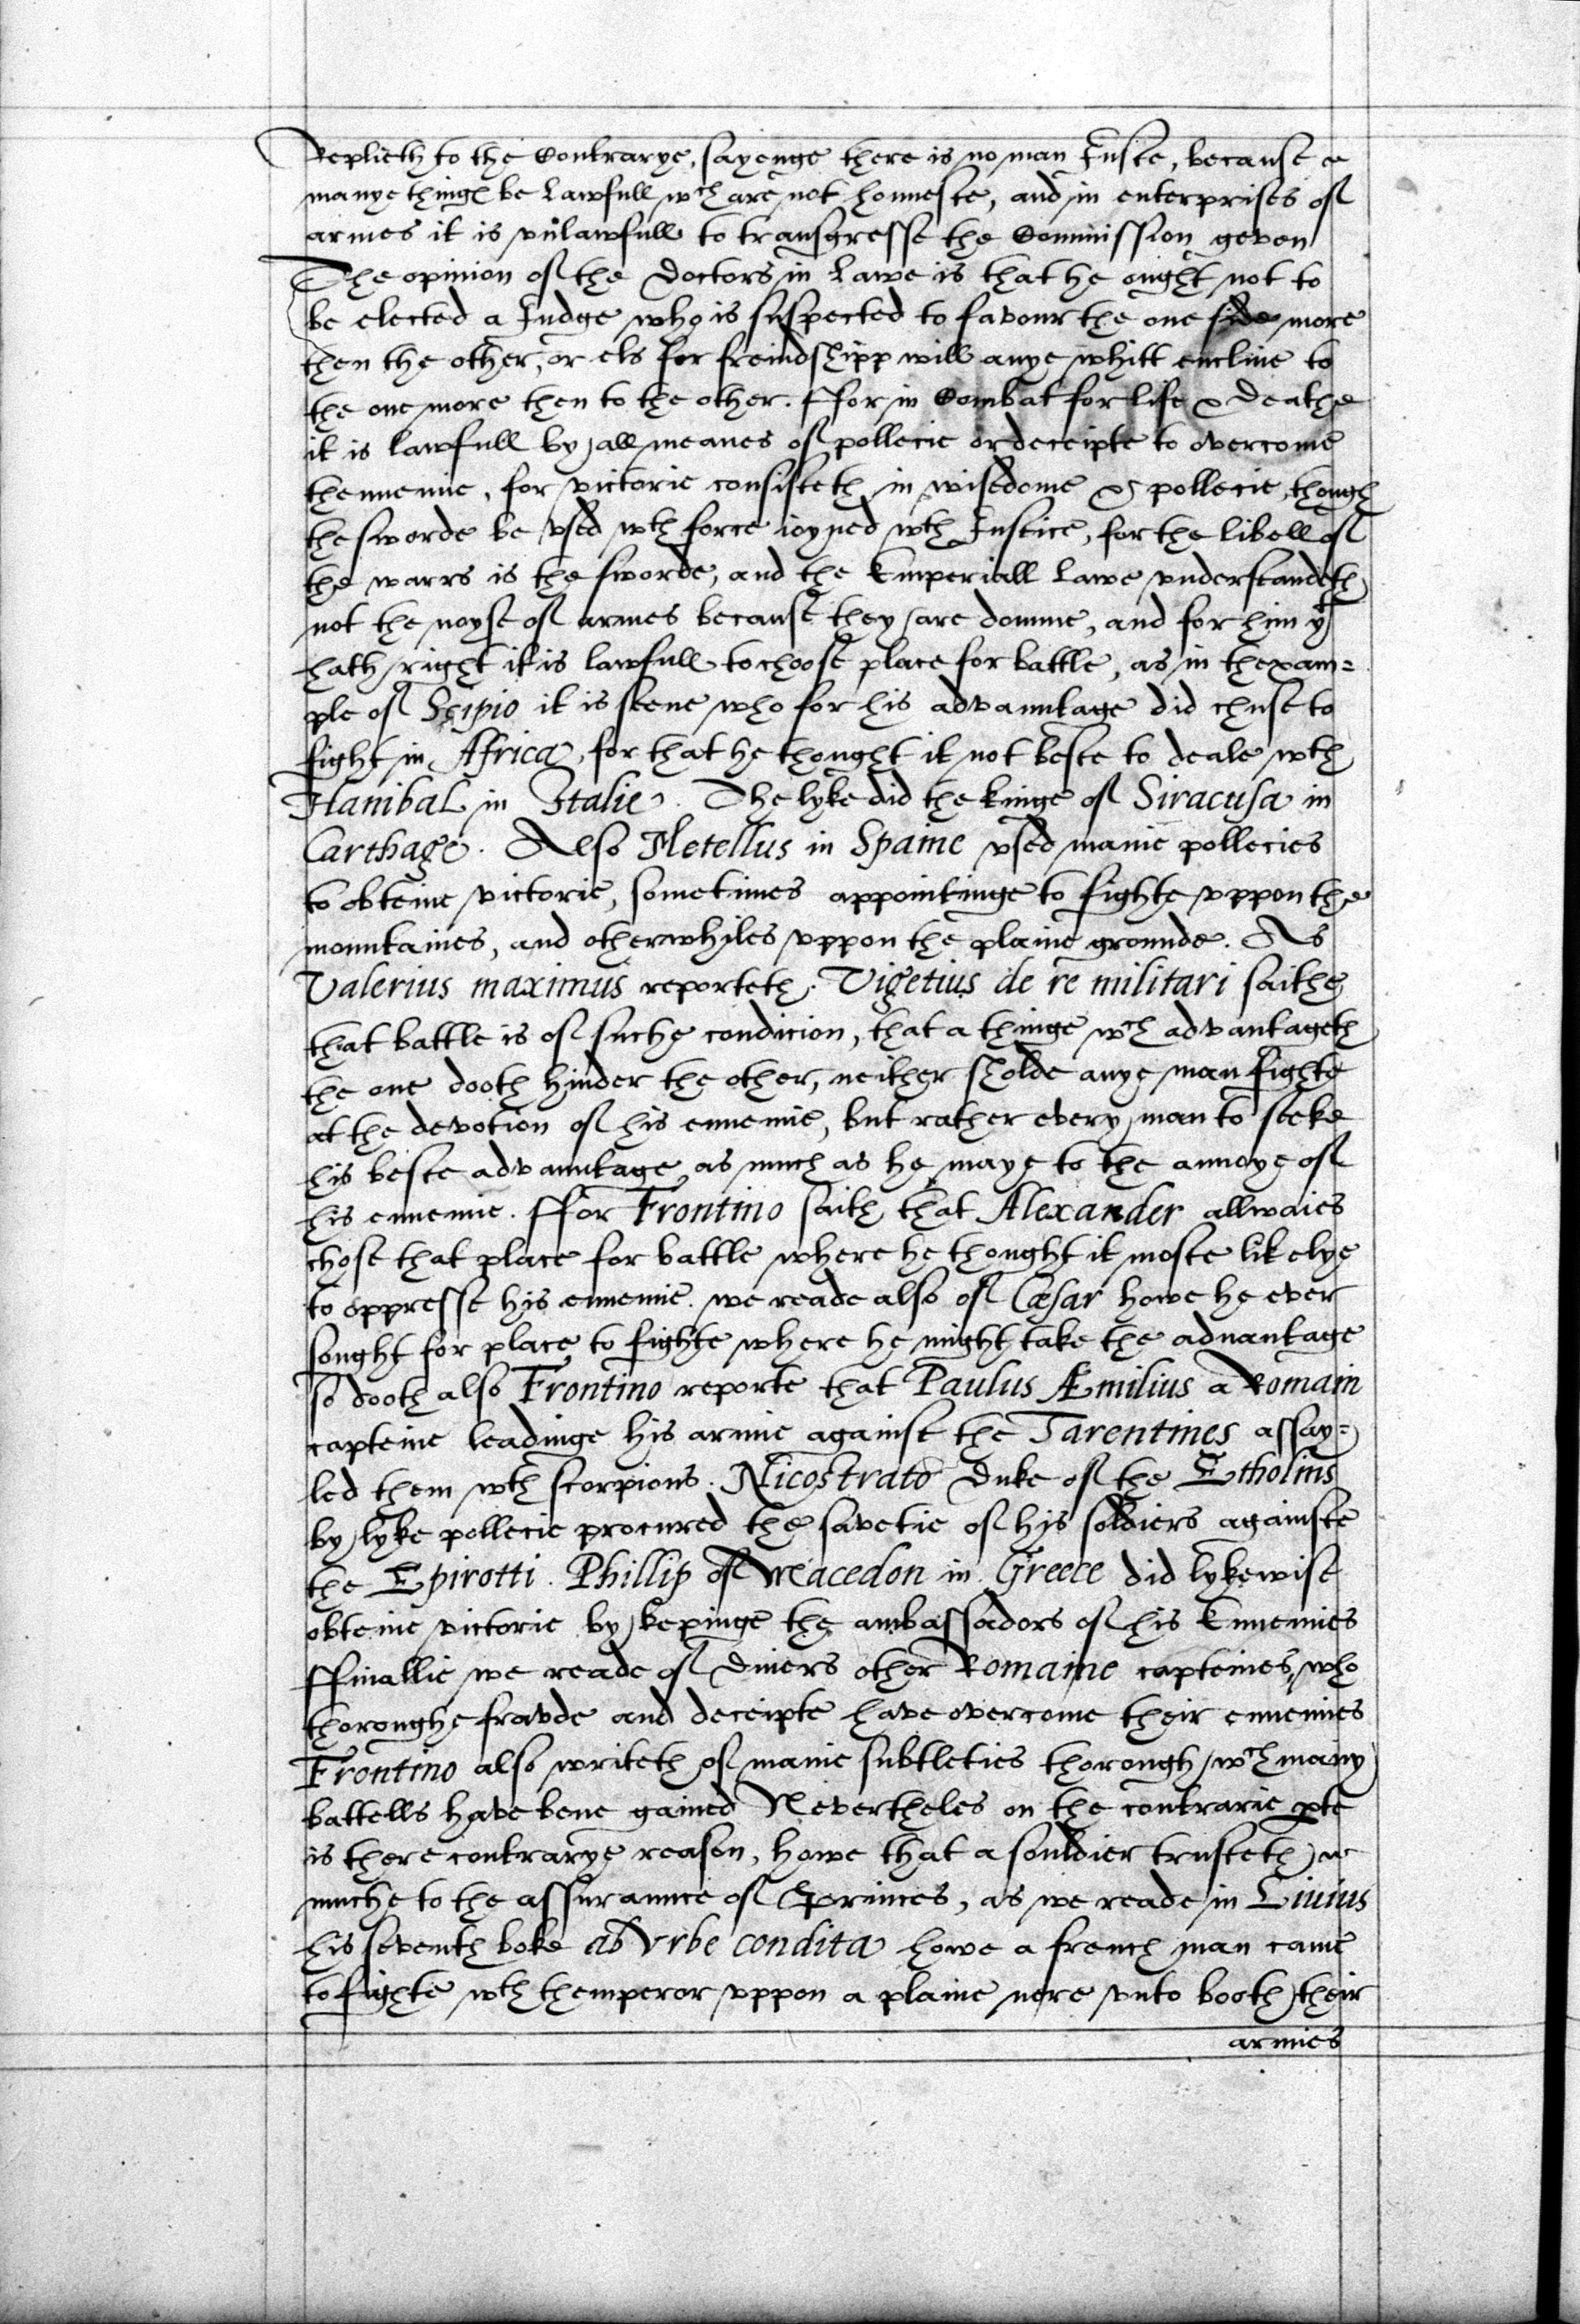 Replieth to the Contrarye, sayenge there is no man Iuste, because
manye things be Lawfull wch are not honneste, and in enterprises of
armes it is vnlawfull to transgresse the Commission geven
The opinion of the Doctors in Lawe is that he ought not to
be elected a Iudge who is suspected to favour the one side more
then the other, or els for freindshipp will anye whitt encline to
the one more then to the other. ffor in Combat for life & Deathe
it is lawfull by all meanes of pollecie or deceipte to overcome
thennemie, for victorie consisteth in wisedome & pollecie, though
the sworde be vsed wth force ioyned wth Iustice, for the libell of
the warrs is the sworde, and the Emperiall Lawe vnderstandeth
not the noyse of armes because they are domme, and for him yt
hath right it is lawfull to choose place for battle, as in thexam=
ple of Scipio it is seene who for his advauntage did chuse to
fight in Africa, for that he thought it not beste to deale wth
Hanibal in Italie. The lyke did the kinge of Siracusa in
Carthage. Also Metellus in Spaine vsed manie pollecies
to obteine victorie, sometimes appointinge to fighte vppon the
mountaines, and otherwhyles vppon the plaine grounde. As
Valerius maximus reporteth. Vigetius de re militari saithe
that battle is of suche condicion, that a thinge wch advantageth
the one dooth hinder the other, neither sholde anye man fighte
at the devotion of his ennemie, but rather every man to seeke
his beste advauntage as much as he maye to the annoye of
his ennemie. ffor Frontino saith that Alexander allwaies
chose that place for battle where he thought it moste likelye
to oppresse his ennemie. we reade also of Cæsar howe he ever
sought for place to fighte where he might take the aduantage
so dooth also Frontino reporte that Paulus Æmilius a Romain
capteine leadinge his armie against the Tarentines assay=
led them wth scorpions. Nicostrato Duke of the Etholins
by lyke pollecie procured the savetie of his soldiers againste
the Epirotti. Phillip of Macedon in Greece did lykewise
obteine victorie by kepinge the ambassadors of his Ennemies
ffinallie we reade of Diuers other Romaine capteines, who
thoroughe fravde and deceipte have overcome their ennemies
Frontino also writeth of manie subtleties thorough wch many
battells have bene gained Nevertheles on the contrarie pte
is there contrarye reason, howe that a souldier trusteth
muche to the assuraunce of Princes, as we reade in Liuius
his seventh boke ab Vrbe condita howe a french man came
to fighte wth themperor vppon a plaine nere vnto booth their
armies